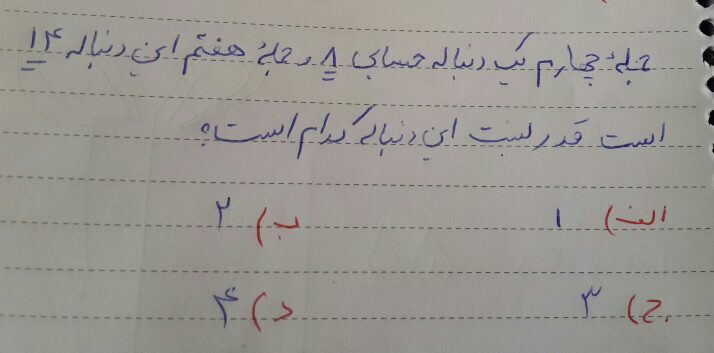 جملهٔ چهارم یک دنباله حسابی ۸ و جملهٔ هفتم این دنباله ۱۴
است قدر نسبت این دنباله کدام است؟
الف) ۱ ب) ۲
ج) ۳ د) ۴